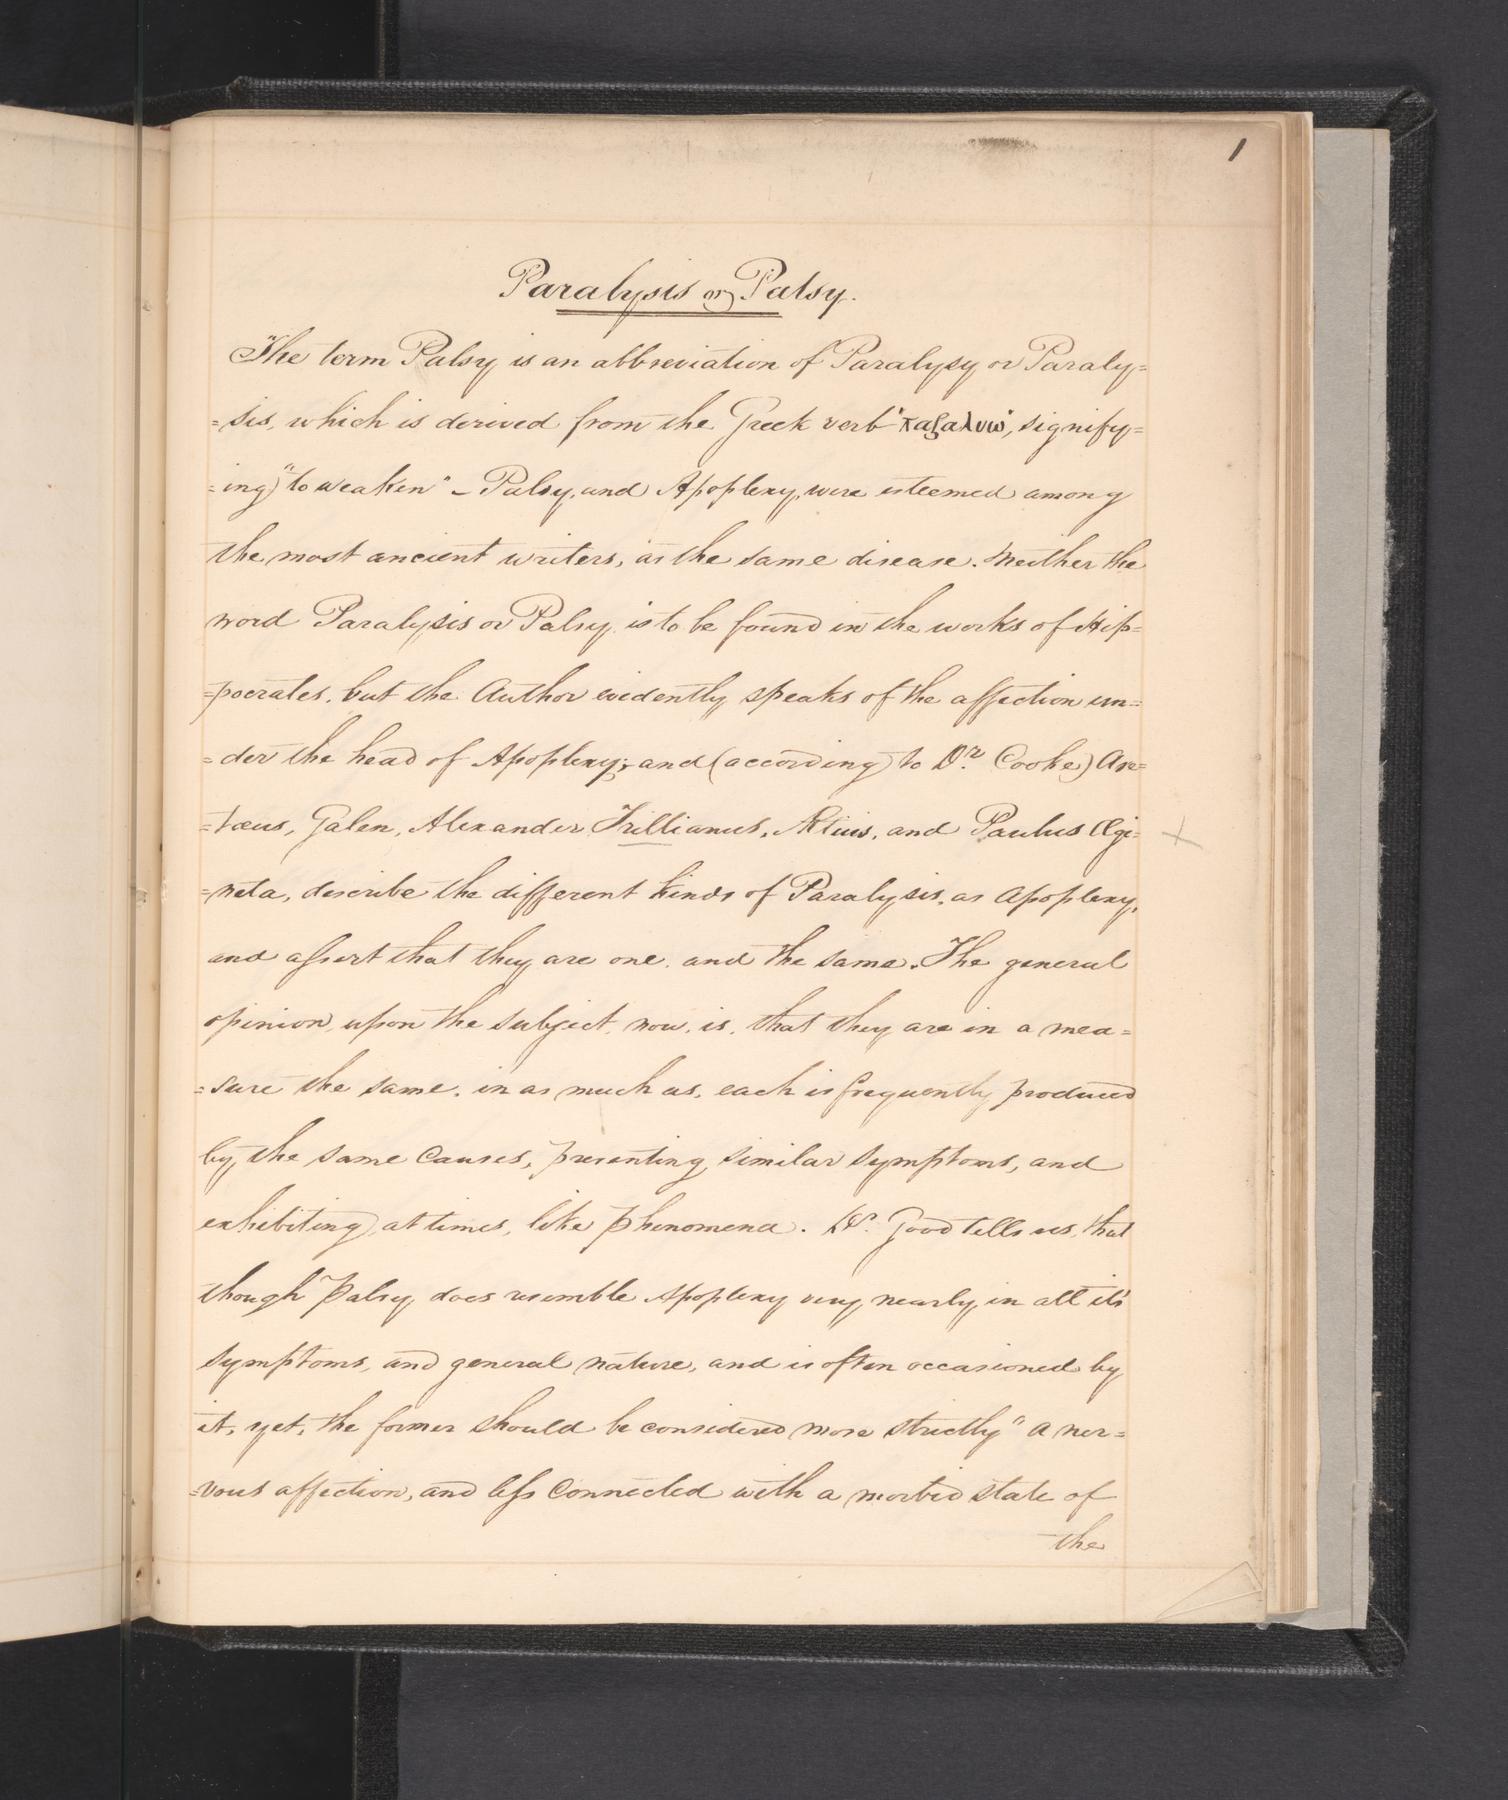 1
Paralysis or Palsy.
The term Palsy is an abbreviation of Paralysy or Paraly=
=sis, which is derived from the Greek verb "παραλυω", signify=
=ing "to weaken" – Palsy, and Apoplexy, were esteemed among
the most ancient writers, as the same disease. Neither the
word Paralysis or Palsy is to be found in the works of Hip=
=pocrates, but the Author evidently speaks of the affection un=
=der the head of Apoplexy; and (according to Dr. Cooke) Are=
=tæus, Galen, Alexander Trillianus, Ætius, and Paulus Ægi=
=neta, describe the different kinds of Paralysis, as Apoplexy,
and assert that they are one, and the same. The general
opinion, upon the subject, now, is, that they are in a mea=
=sure the same, in as much as, each is frequently produced
by, the same Causes, presenting, similar symptoms, and
exhibiting, at times, like phenomena. Dr. Good tells us, that
though Palsy, does resemble Apoplexy very nearly, in all it's
symptoms, and general nature, and is often occasioned by
it, yet, the former should be considered more strictly "a ner=
=vous affection, and less Connected with a morbid state of
the